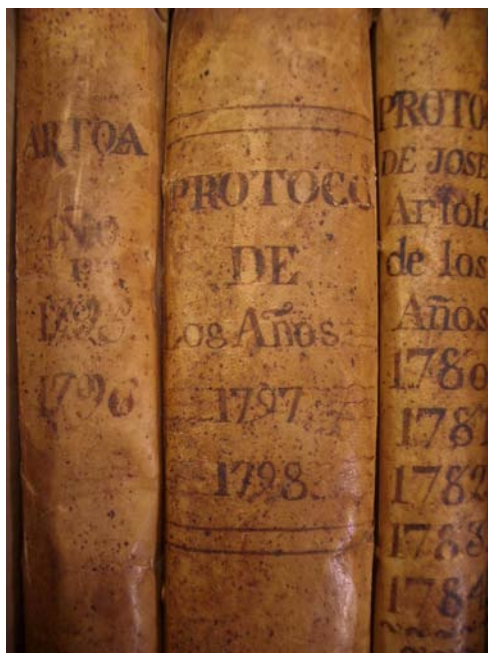 ARTOA
AÑO
1796
PROTOCO
DE
os Años
1797
1798
PROTO
DE JOSE
Artola
de los
Años
1780
1781
1782
1783
1784